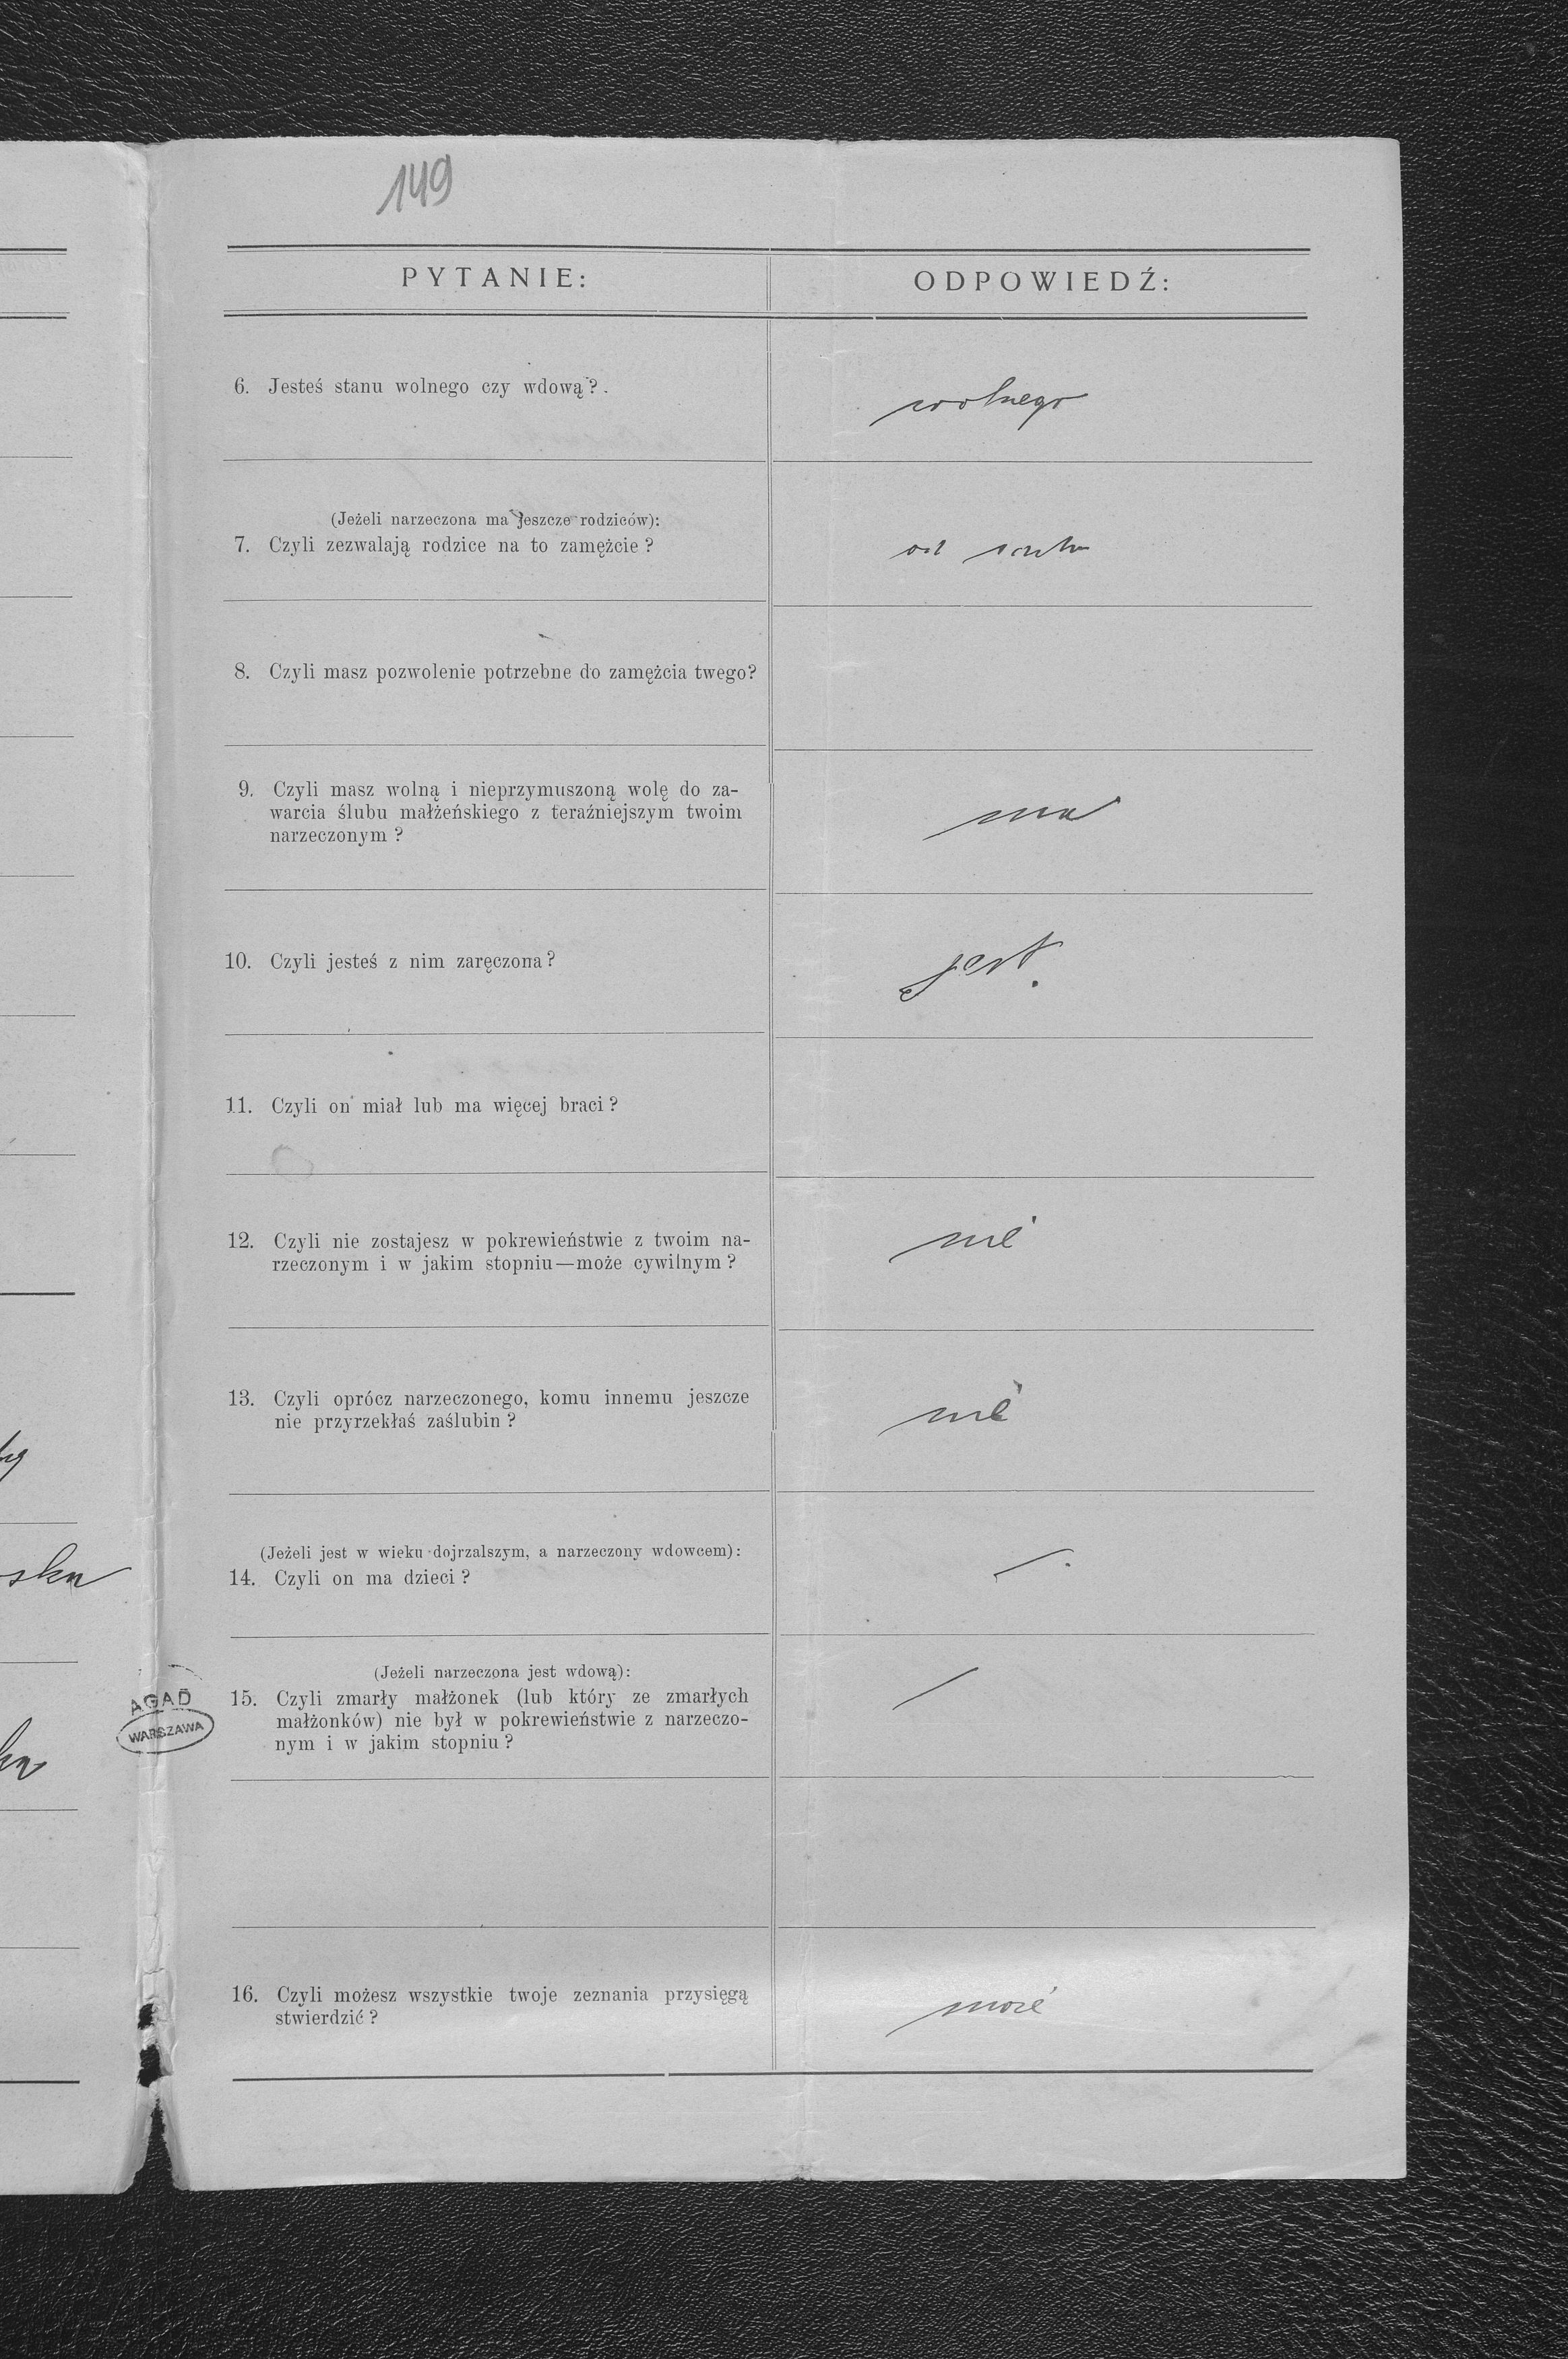 149
PYTANIE:
ODPOWIEDŹ:
6. Jesteś stanu wolnego czy wdową?.
wolnego
(Jeżeli narzeczona ma jeszcze rodziców):
7. Czyli zezwalają rodzice na to zamężcie?
8. Czyli masz pozwolenie potrzebne do zamężcia twego?
9. Czyli masz wolną i nieprzymuszoną wolę do za-
warcia ślubu małżeńskiego z teraźniejszym twoim
narzeczonym?
ma
10. Czyli jesteś z nim zaręczona?
jest.
11. Czyli on miał lub ma więcej braci?
12. Czyli nie zostajesz w pokrewieństwie z twoim na-
rzeczonym i w jakim stopniu—może cywilnym?
nie
13. Czyli oprócz narzeczonego, komu innemu jeszcze
nie przyrzekłaś zaślubin?
nie
(Jeżeli jest w wieku dojrzalszym, a narzeczony wdowcem):
14. Czyli on ma dzieci?
(Jeżeli narzeczona jest wdową):
15. Czyli zmarły małżonek (lub który ze zmarłych
małżonków) nie był w pokrewieństwie z narzeczo-
nym i w jakim stopniu?
AGAD
WARSZAWA
16. Czyli możesz wszystkie twoje zeznania przysięgą
stwierdzić?
może